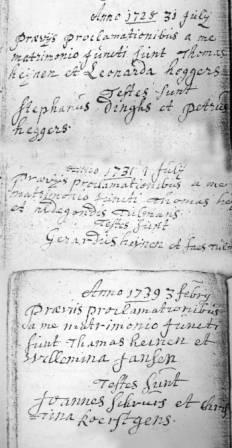 Anno 1728 31 july
prævijs proclamationibus a me
matrimonio juncti sunt Thomas
heijnen et Leonarda heggers
Testes sunt
stephanus Dinghs et petrus
heggers.
Anno 1731 1 july
prævijs proclamationibus a me
matrimonio juncti Thomas hey
et aldegondes Tulmans
Testes sunt
Gerardus heijnen et
Anno 1739 3 febrij
prævijs proclamationibus
a me matrimonio juncti
sunt Thomas heinen et
Willemina Jansen
Testes sunt
Joannes scheurs et Chris
tina koerstgens.